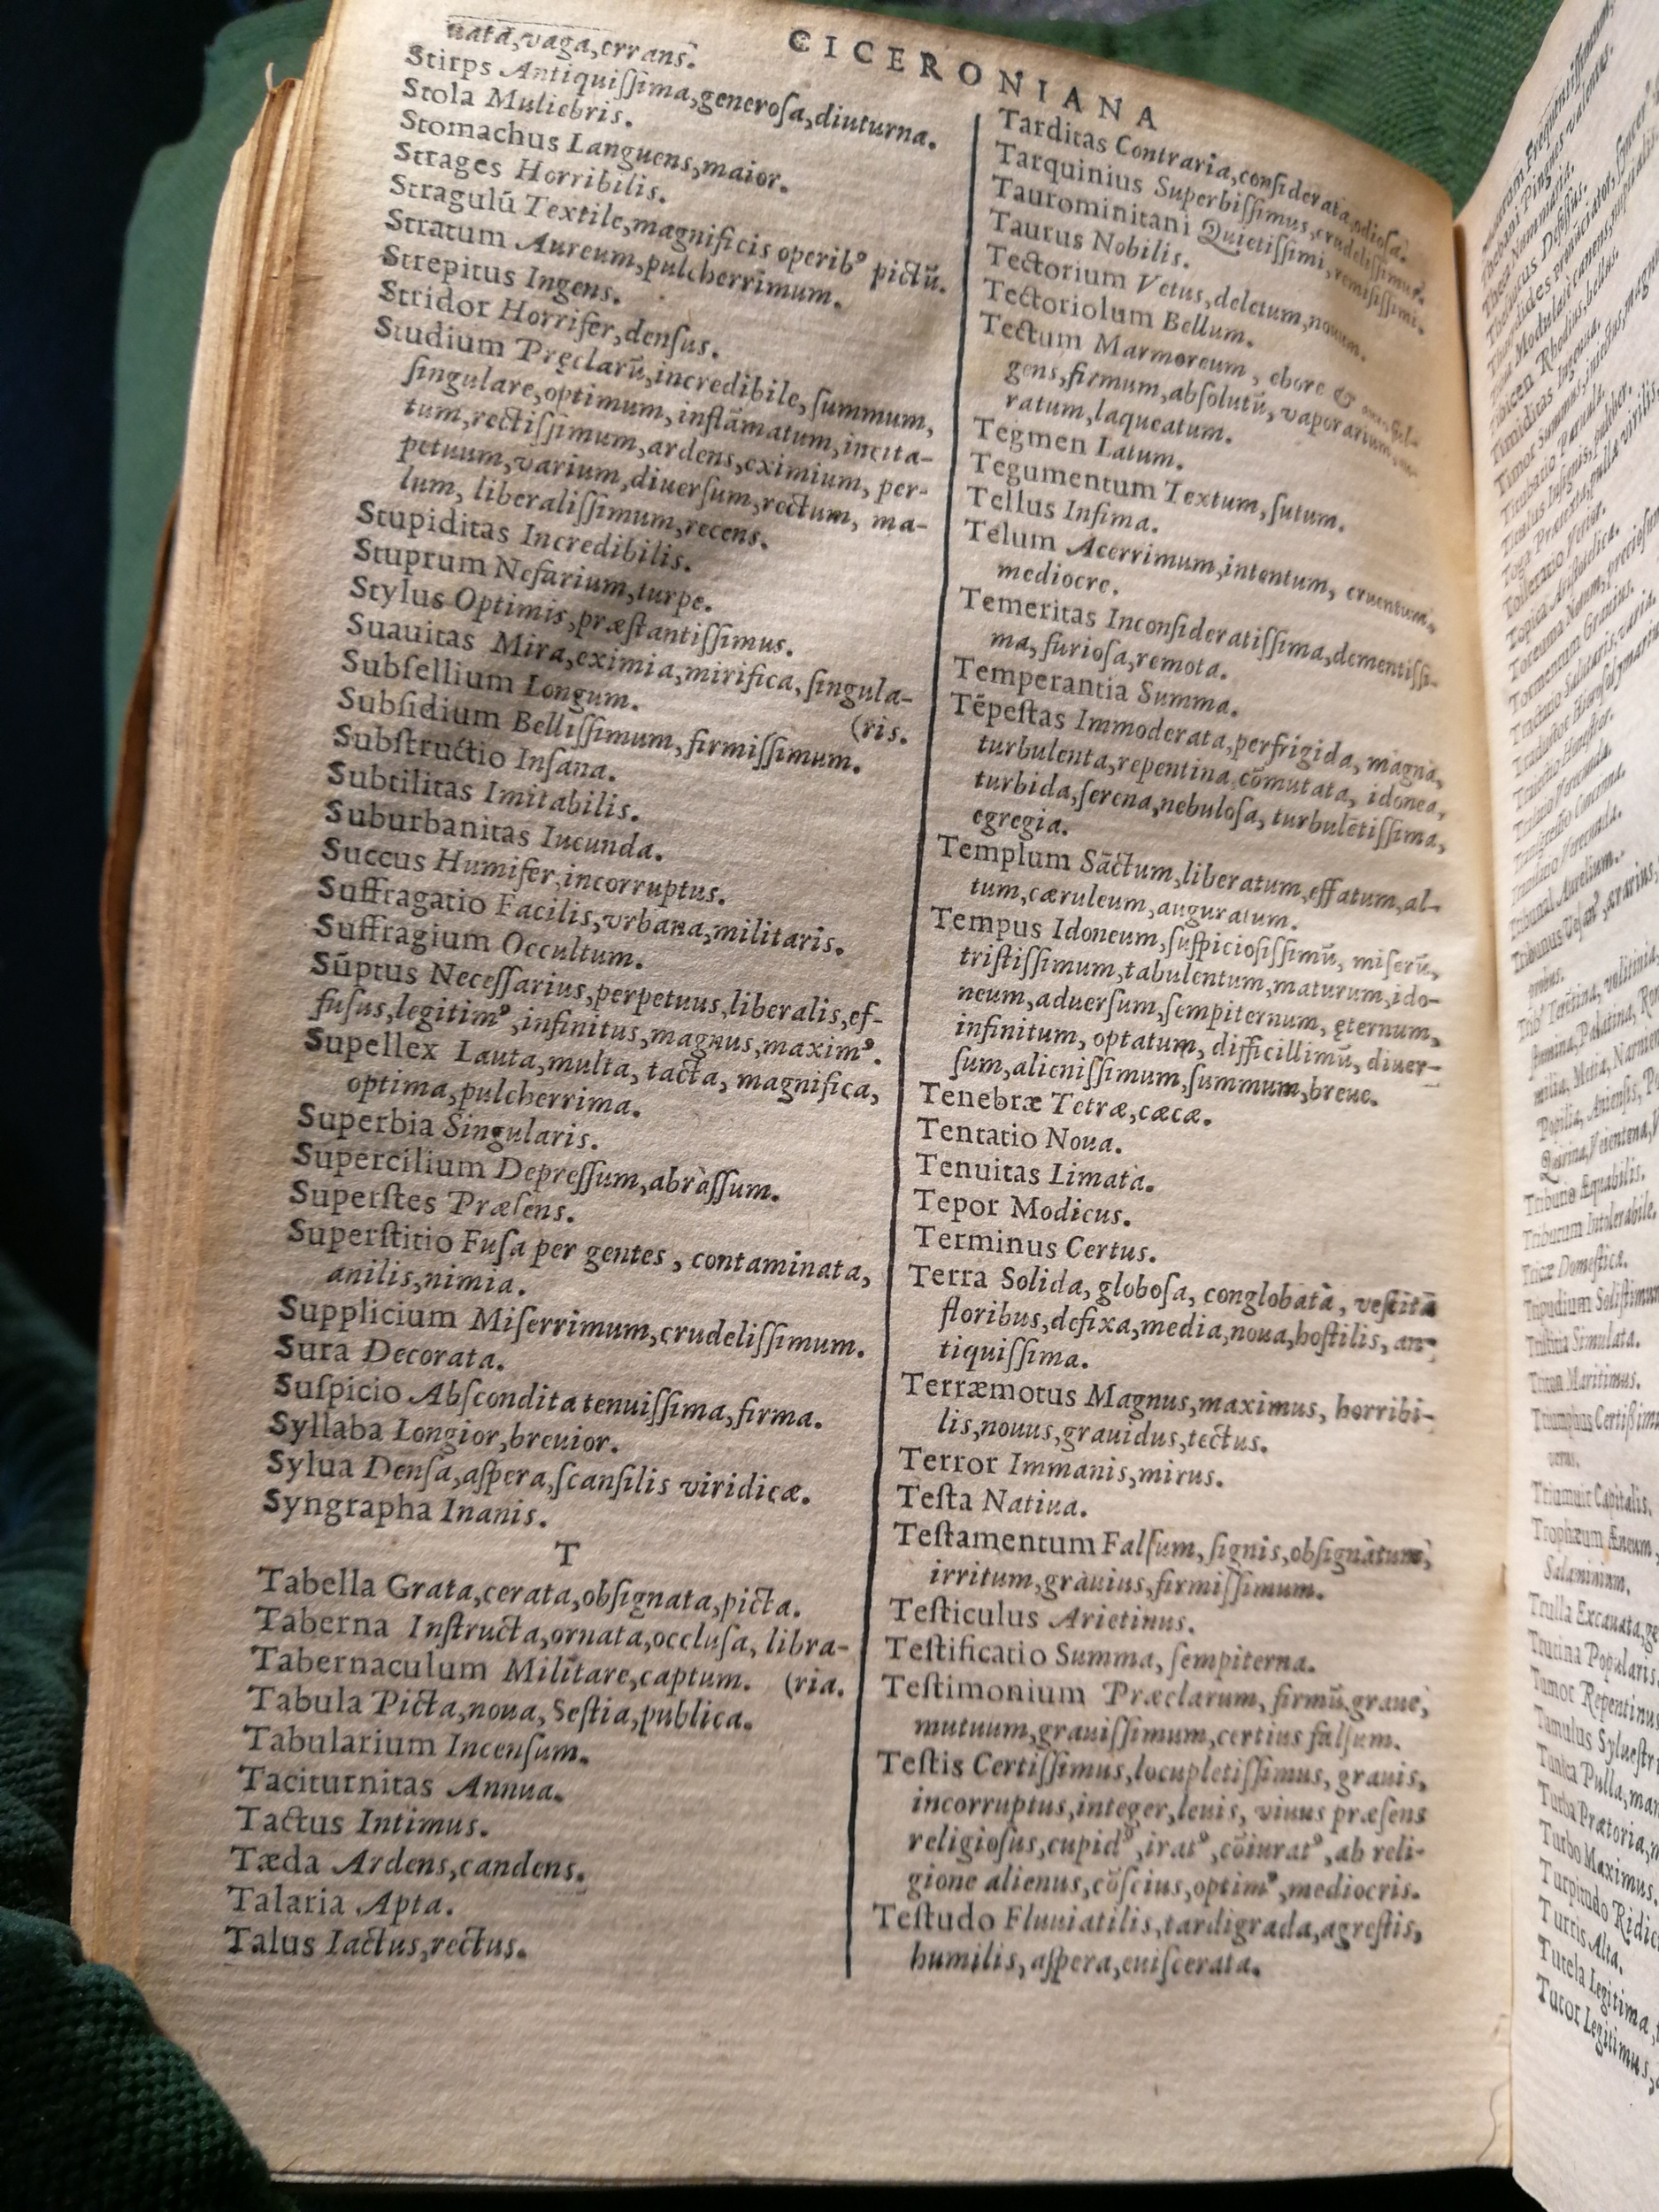 CICERONIANA
nata,vaga,errans.
Stirps Antiquiſſima,generoſa,diuturna.
Stola Muliebris.
Stomachus Languens,maior.
Strages Horribilis.
Stragulū Textile,magnificis operibꝰ pictū.
Stratum Aureum,pulcherrimum.
Strepitus Ingens.
Stridor Horrifer,denſus.
Studium Pręclarū,incredibile,ſummum,
ſingulare,optimum,inflāmatum,incita-
tum,rectiſſimum,ardens,eximium, per-
petuum,varium,diuerſum,rectum, ma-
lum, liberaliſſimum,recens.
Stupiditas Incredibilis.
Stuprum Nefarium,turpe.
Stylus Optimis,præſtantiſſimus.
Suauitas Mira,eximia,mirifica,ſingula-
Subſellium Longum. (ris.
Subſidium Belliſſimum,firmiſſimum.
Subſtructio Inſana.
Subtilitas Imitabilis.
Suburbanitas Iucunda.
Succus Humifer,incorruptus.
Suffragatio Facilis,vrbana,militaris.
Suffragium Occultum.
Sūptus Neceſſarius,perpetuus,liberalis,ef-
fuſus,legitimꝰ,infinitus,magnus,maximꝰ.
Supellex Lauta,multa, tacta, magnifica,
optima,pulcherrima.
Superbia Singularis.
Supercilium Depreſſum,abraſſum.
Superſtes Præſens.
Superſtitio Fuſa per gentes , contaminata,
anilis,nimia.
Supplicium Miſerrimum,crudeliſſimum.
Sura Decorata.
Suſpicio Abſcondita tenuiſſima,firma.
Syllaba Longior,breuior.
Sylua Denſa,aſpera,ſcanſilis viridicæ.
Syngrapha Inanis.
T
Tabella Grata,cerata,obſignata,picta.
Taberna Inſtructa,ornata,occluſa, libra-
Tabernaculum Militare,captum. (ria.
Tabula Picta,noua, Seſtia,publica.
Tabularium Incenſum.
Taciturnitas Annua.
Tactus Intimus.
Tæda Ardens,candens.
Talaria Apta.
Talus Iactus,rectus.
Tarditas Contraria,conſiderata,odioſa.
Tarquinius Superbiſſimus,crudeliſſimus.
Taurominitani Quietiſſimi,remiſiſſimi.
Taurus Nobilis.
Tectorium Vetus,deletum,nouum.
Tectoriolum Bellum.
Tectum Marmoreum , ebore &
gens,firmum,abſolutū, vaporarium,
ratum,laqueatum.
Tegmen Latum.
Tegumentum Textum,ſutum.
Tellus Infima.
Telum Acerrimum,intentum, cruentum,
mediocre.
Temeritas Inconſideratiſſima,dementiſſi-
ma, furioſa,remota.
Temperantia Summa.
Tēpeſtas Immoderata,perfrigida, magna,
turbulenta,repentina,cōmutata, idonea,
turbida,ſerena,nebuloſa, turbulētiſſima,
egregia.
Templum Sāctum,liberatum,effatum,al-
tum,cæruleum,auguratum.
Tempus Idoneum,ſuſpicioſiſſimū, miſerū,
triſtiſſimum,tabulentum,maturum,ido-
neum,aduerſum,ſempiternum, ęternum,
infinitum, optatum, difficillimū, diuer-
ſum,alieniſſimum,ſummum,breue.
Tenebræ Tetræ,cæcæ.
Tentatio Noua.
Tenuitas Limata.
Tepor Modicus.
Terminus Certus.
Terra Solida, globoſa, conglobata, veſtita
floribus,defixa,media,noua,hoſtilis, an-
tiquiſſima.
Terræmotus Magnus,maximus, horribi-
lis,nouus,grauidus,tectus.
Terror Immanis,mirus.
Teſta Natiua.
Teſtamentum Falſum, ſignis,obſignatum,
irritum,grauius,firmiſſimum.
Teſticulus Arietinus.
Teſtificatio Summa, ſempiterna.
Teſtimonium Præclarum, firmū,graue,
mutuum,grauiſſimum,certius falſum.
Teſtis Certiſſimus,locupletiſſimus, grauis,
incorruptus,integer,leuis, viuus præſens
religioſus,cupidꝰ,iratꝰ,cōiuratꝰ,ab reli-
gione alienus,cōſcius,optimꝰ,mediocris.
Teſtudo Fluuiatilis,tardigrada,agreſtis,
humilis, aſpera,euiſcerata.
Thebani Pingues valentes.
Timiditas Ingenua.
Titubatio Paruula.
Tribunal Aurelium.
Tributio Æquabilis.
Tributum Intolerabile.
Tricæ Domeſticæ.
Tripudium Soliſtimum
Triſtitia Simulata.
Triton Maritimus.
Triumphus Certißim
verus.
Triumuir Capitalis.
Trophæum Æneum,
Salaminium.
Trulla Excauata,ge
Trutina Popularis.
Tumor Repentinus
Tumulus Sylueſtri
Tunica Pulla,man
Turba Prætoria,
Turbo Maximus.
Turpitudo Ridic
Turris Alta.
Tutela Legitima,
Tutor Legitimus,